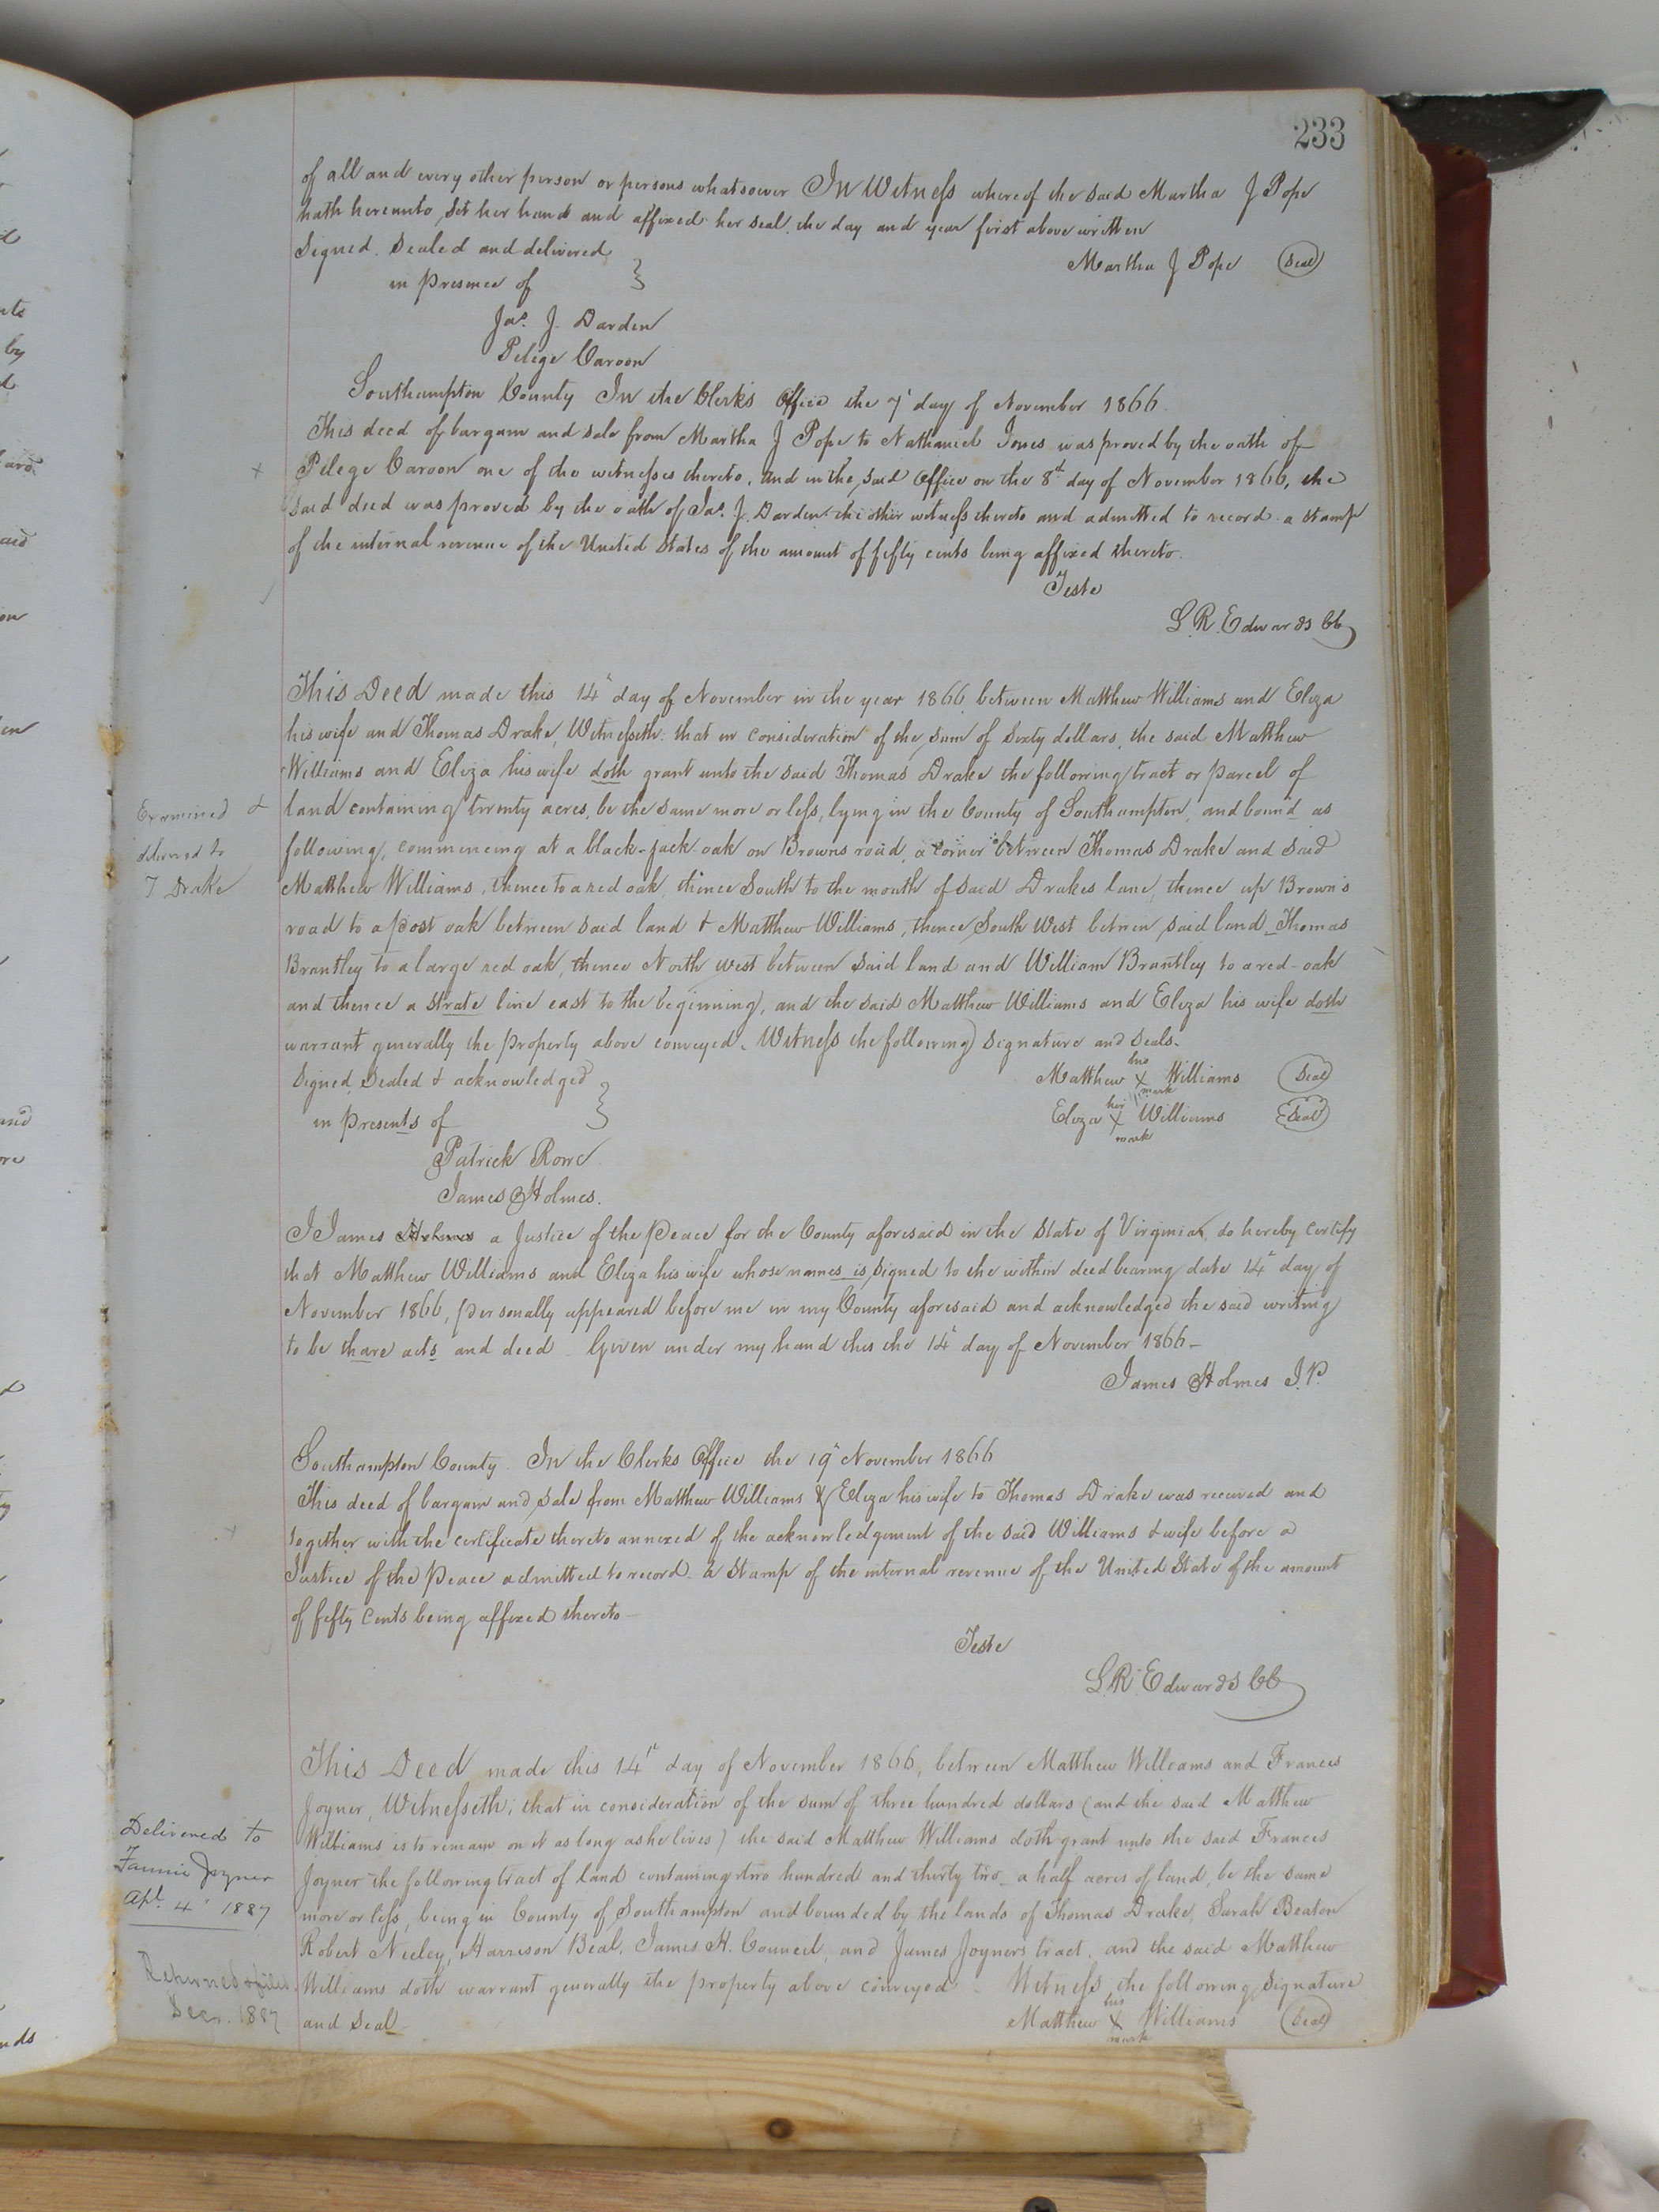 233
of all and every other person or persons whatsoever In Witness whereof the said Martha J Pope
hath hereunto set her hand and affixed her seal, the day and year first above written
Signed Sealed and delivered
Martha J Pope Seal
in presence of
Jas. J. Darden
Pelege Caroon
Southampton County In the Clerks Office the 7' day of November 1866.
This deed of bargain and sale from Martha J Pope to Nathaniel Jones was proved by the oath of
+ Pelege Caroon one of the witnesses thereto, and in the said Office on the 8th day of November 1866, the
said deed was proved by the oath of Jas. J. Darden the other witness thereto and admitted to record a stamp
of the internal revenue of the United States of the amount of fifty cents being affixed thereto.
Teste
L. R. Edwards CC
This Deed made this 14" day of November in the year 1866 between Matthew Williams and Eliza
his wife and Thomas Drake, Witnesseth: that in consideration of the sum of Sixty dollars, the said Matthew
Williams and Eliza his wife doth grant unto the said Thomas Drake the following tract or parcel of
Examined &
land containing twenty acres, be the same more or less, lying in the County of Southampton, and bound as
delivered to
following, commencing at a black-jack oak on Browns road, a corner between Thomas Drake and said
T Drake
Matthew Williams, thence to a red oak, thence South to the mouth of said Drakes lane, thence up Brown's
road to a post oak between said land & Matthew Williams, thence South West betwen said land_Thomas
Brantley to a large red oak, thence North west between said land and William Brantley to a red-oak
and thence a strate line east to the beginning, and the said Matthew Williams and Eliza his wife doth
warrant generally the property above conveyed. Witness the following signature and seals.
Signed, Sealed & acknowledged
Matthew his X mark Williams Seal
in presents of
Eliza her X mark Williams Seal
Patrick Rowe
James Holmes.
I James Holmes a Justice of the Peace for the County aforesaid in the State of Virginia, do hereby certify
that Matthew Williams and Eliza his wife whose names is signed to the within deed bearing date 14" day of
November 1866, personally appeared before me in my County aforesaid and acknowledged the said writing
to be thare acts and deed. Given under my hand this the 14" day of November 1866-
James Holmes J.P.
Southampton County. In the Clerks Office the 19" November 1866
This deed of bargain and sale from Matthew Williams & Eliza his wife to Thomas Drake was received and
together with the certificate thereto annexed of the acknowledgement of the said Williams & wife before a
Justice of the Peace admitted to record. a Stamp of the internal revenue of the United State of the amount
of fifty Cents being affixed thereto-
Teste
L. R. Edwards CC
This Deed made this 14" day of November 1866, between Matthew Williams and Frances
Joyner, Witnesseth; that in consideration of the sum of three hundred dollars (and the said Matthew
Delivered to
Williams is to remain on it as long as he lives) the said Matthew Williams doth grant unto the said Frances
Fannie Joyner
Joyner the following tract of land containing two hundred and thirty two_a half acres of land, be the same
Apl. 4" 1887
more or less, being in County of Southampton and bounded by the lands of Thomas Drake, Sarah Beaton
Robert Neeley, Harrison Beal, James H. Council, and James Joyners tract, and the said Matthew
Returned & filed
Williams doth warrant generally the property above conveyed. Witness the following signature
Decr. 1887
and Seal-
Matthew his X mark Williams Seal